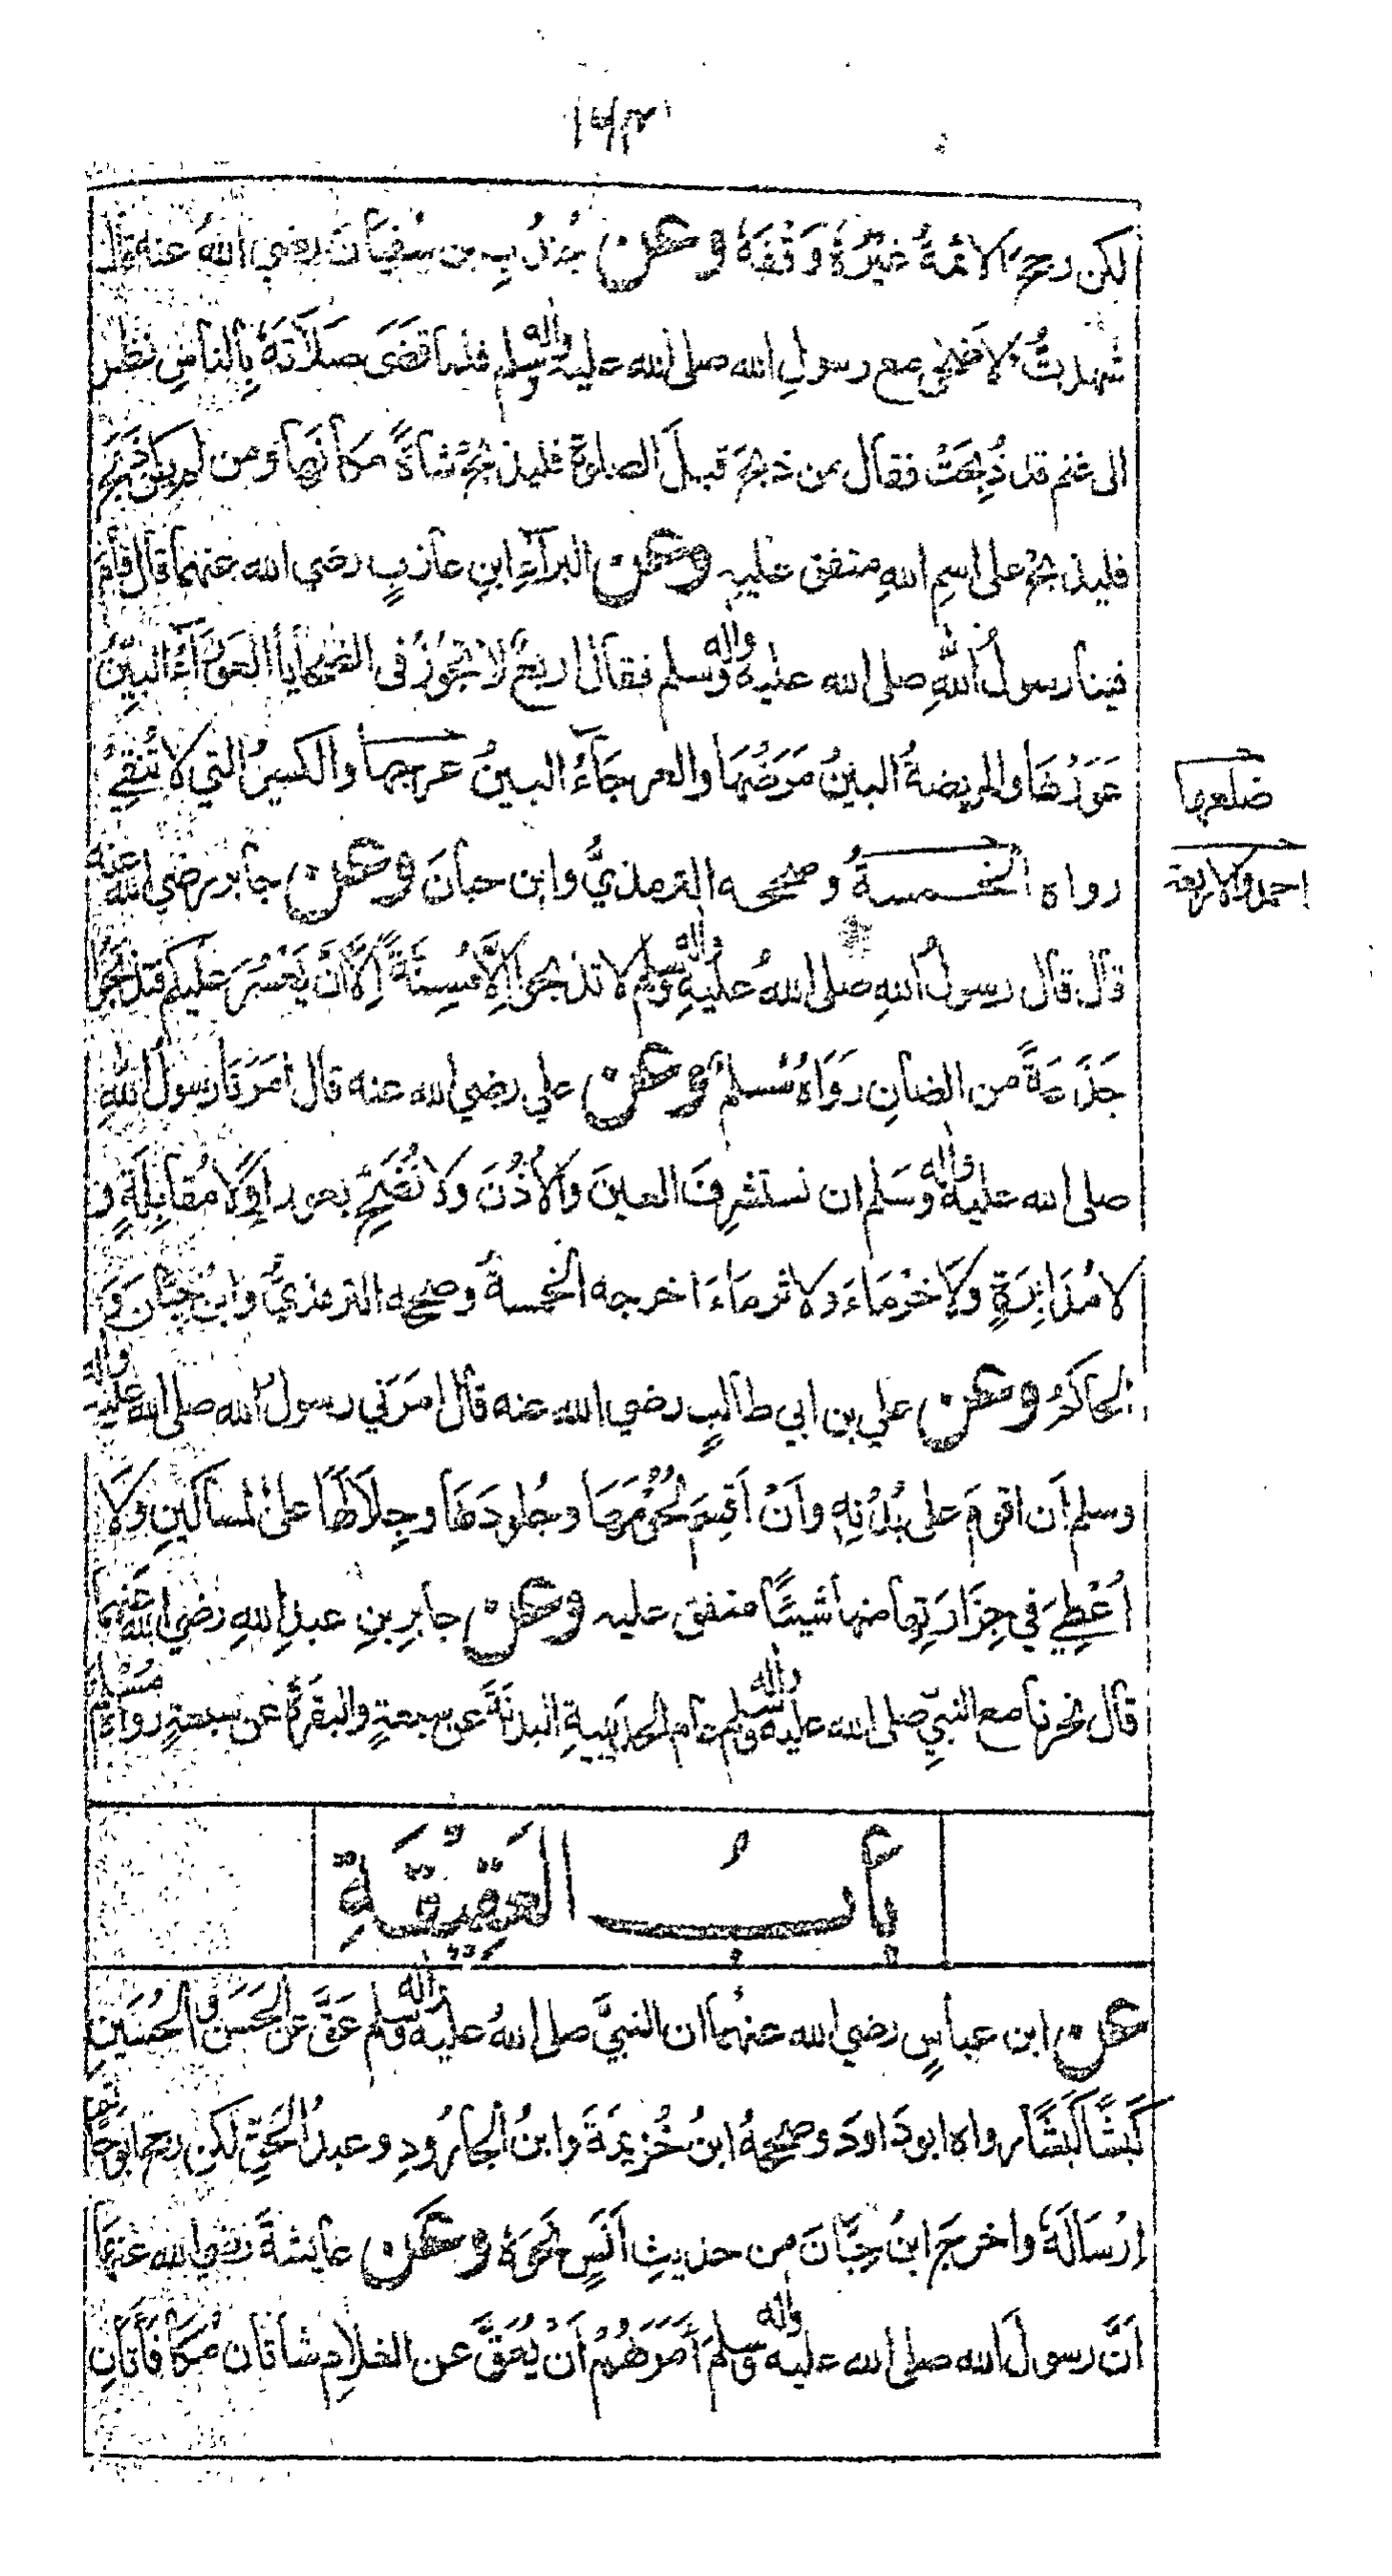 لكن رجح الائمةُ غيرُهُ وَقْفَهُ وعن جُندُبِ بن سُفيانَ رضي اللهُ عنه قال
شهدتُ الاضحى مع رسولِ الله صلى الله عليه واله وسلم فلما قضَى صَلاَتَهُ بِالناسِ نظر
الى غنم قد ذُبِحَتْ فقال من ذبحَ قبلَ الصلوةِ فليذبحْ شاةً مكانَها ومن لم يكن ذَبَحَ
فليذبحْ على اسمِ اللهِ متفق عليهِ وعن البرآءِ ابنِ عازبٍ رضي الله عنهما قال قام
فينا رسولُ اللهِ صلى الله عليه واله وسلم فقال اربعٌ لا تجوزُ فى الضحايا العَوْرَآءُ البيِّنُ
عَوَرُهَا والمريضةُ البينُ مَرَضُهَا والعرجَآءُ البينُ عرجها والكسيرُ التي لا تُنْقِيْ
ضلعها
رواه الخمسةُ وصححه الترمذيُّ وابن حبانَ وعن جابر رضي الله عنه
احمد والاربعة
قال قال رسولُ اللهِ صلى اللهُ عليهِ واله وسلم لا تذبحوا اِلاَّ مُسِنَّةً اِلاَّ اَنْ يَعْسُرَ عليكم فتذبحُوا
جَذَعَةً من الضانِ رَوَاهُ مُسلمٌ وعن علي رضي الله عنه قال اَمَرَنَا رَسولُ اللهِ
صلى الله عليه واله وسَلم ان نستشرِفَ العينَ والاُذُنَ ولا نُضَحِّيْ بعوراءِ ولا مُقابَلَةٍ و
لا مُدَابَرَةٍ ولا خَرْمَاءَ ولا ثرمَاءَ اخرجه الخمسةُ وصححه الترمذيُّ وابنُ حِبَّان وَ
الحاكمُ وعن علي بن ابي طالبٍ رضي الله عنه قال امَرَني رسولُ الله صلى الله عليه واله
وسلم اَن اقومَ على بُدْنِهِ واَنْ اَقْسِمَ لُحُوْمَهَا وجُلودَهَا وجِلاَلَهَا على المساكينِ ولا
اُعْطِيَ في جِزَارَتِها منها شيئًا متفق عليه وعن جابرِ بنِ عبدِ اللهِ رضي الله عنهما
قال نحرنا مع النبيِّ صلى الله عليه واله وسلم عام الحديبيةِ البدنَةَ عن سبعةٍ والبقرةَ عن سبعةٍ رواهُ مُسْلِمٌ
بابُ العَقِيْقَةِ
عن ابن عباسٍ رضي الله عنهُما ان النبيَّ صلى اللهُ عليه واله وسلم عَقَّ عَنِ الحَسَنِ والحُسَينِ
كَبْشًا كَبْشًا رواه ابو دَاودَ وصححهُ ابنُ خُزيمَةَ وابنُ الجارُودِ وعبدُ الحَقِّ لكن رجح ابو حَاتِمٍ
اِرْسَالَهُ واخرجَ ابنُ حِبَّانَ من حديثِ اَنَسٍ نحوَهُ وعَن عايشةَ رضي الله عنها
اَنَّ رسولَ الله صلى الله عليه واله وسلمَ اَمَرَهُمْ اَنْ يُعَقَّ عن الغلامِ شاتان مُكافأتانِ